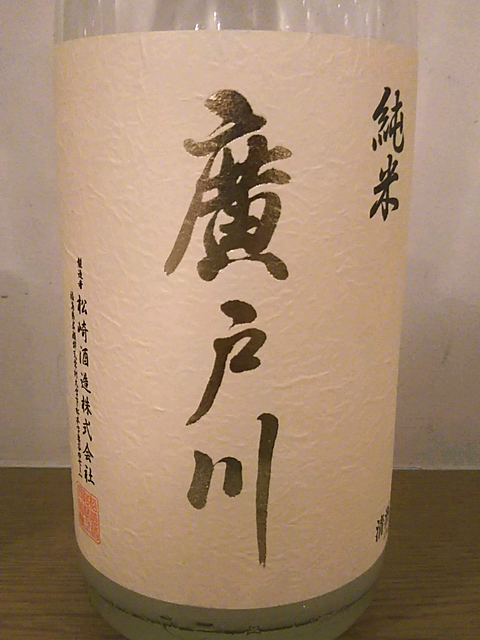 純米
廣戸川
醸造者 松崎酒造株式会社